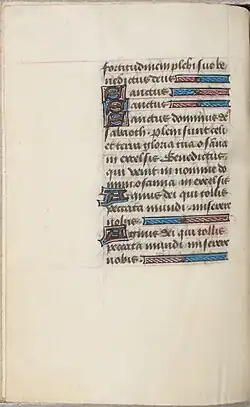 fortitudinem plebi suo be
nedictus deus
Sanctus
Sanctus
Sanctus dominus de
sabaoth. pleni sunt celi
et terra gloria tua osāna
in excelsis. Benedictus
qui venit in nomine do
mini osanna in excelsis
Agnus dei qui tollis
peccata mundi. miserere
nobis.
Agnus dei qui tollis
peccata mundi miserere
nobis.